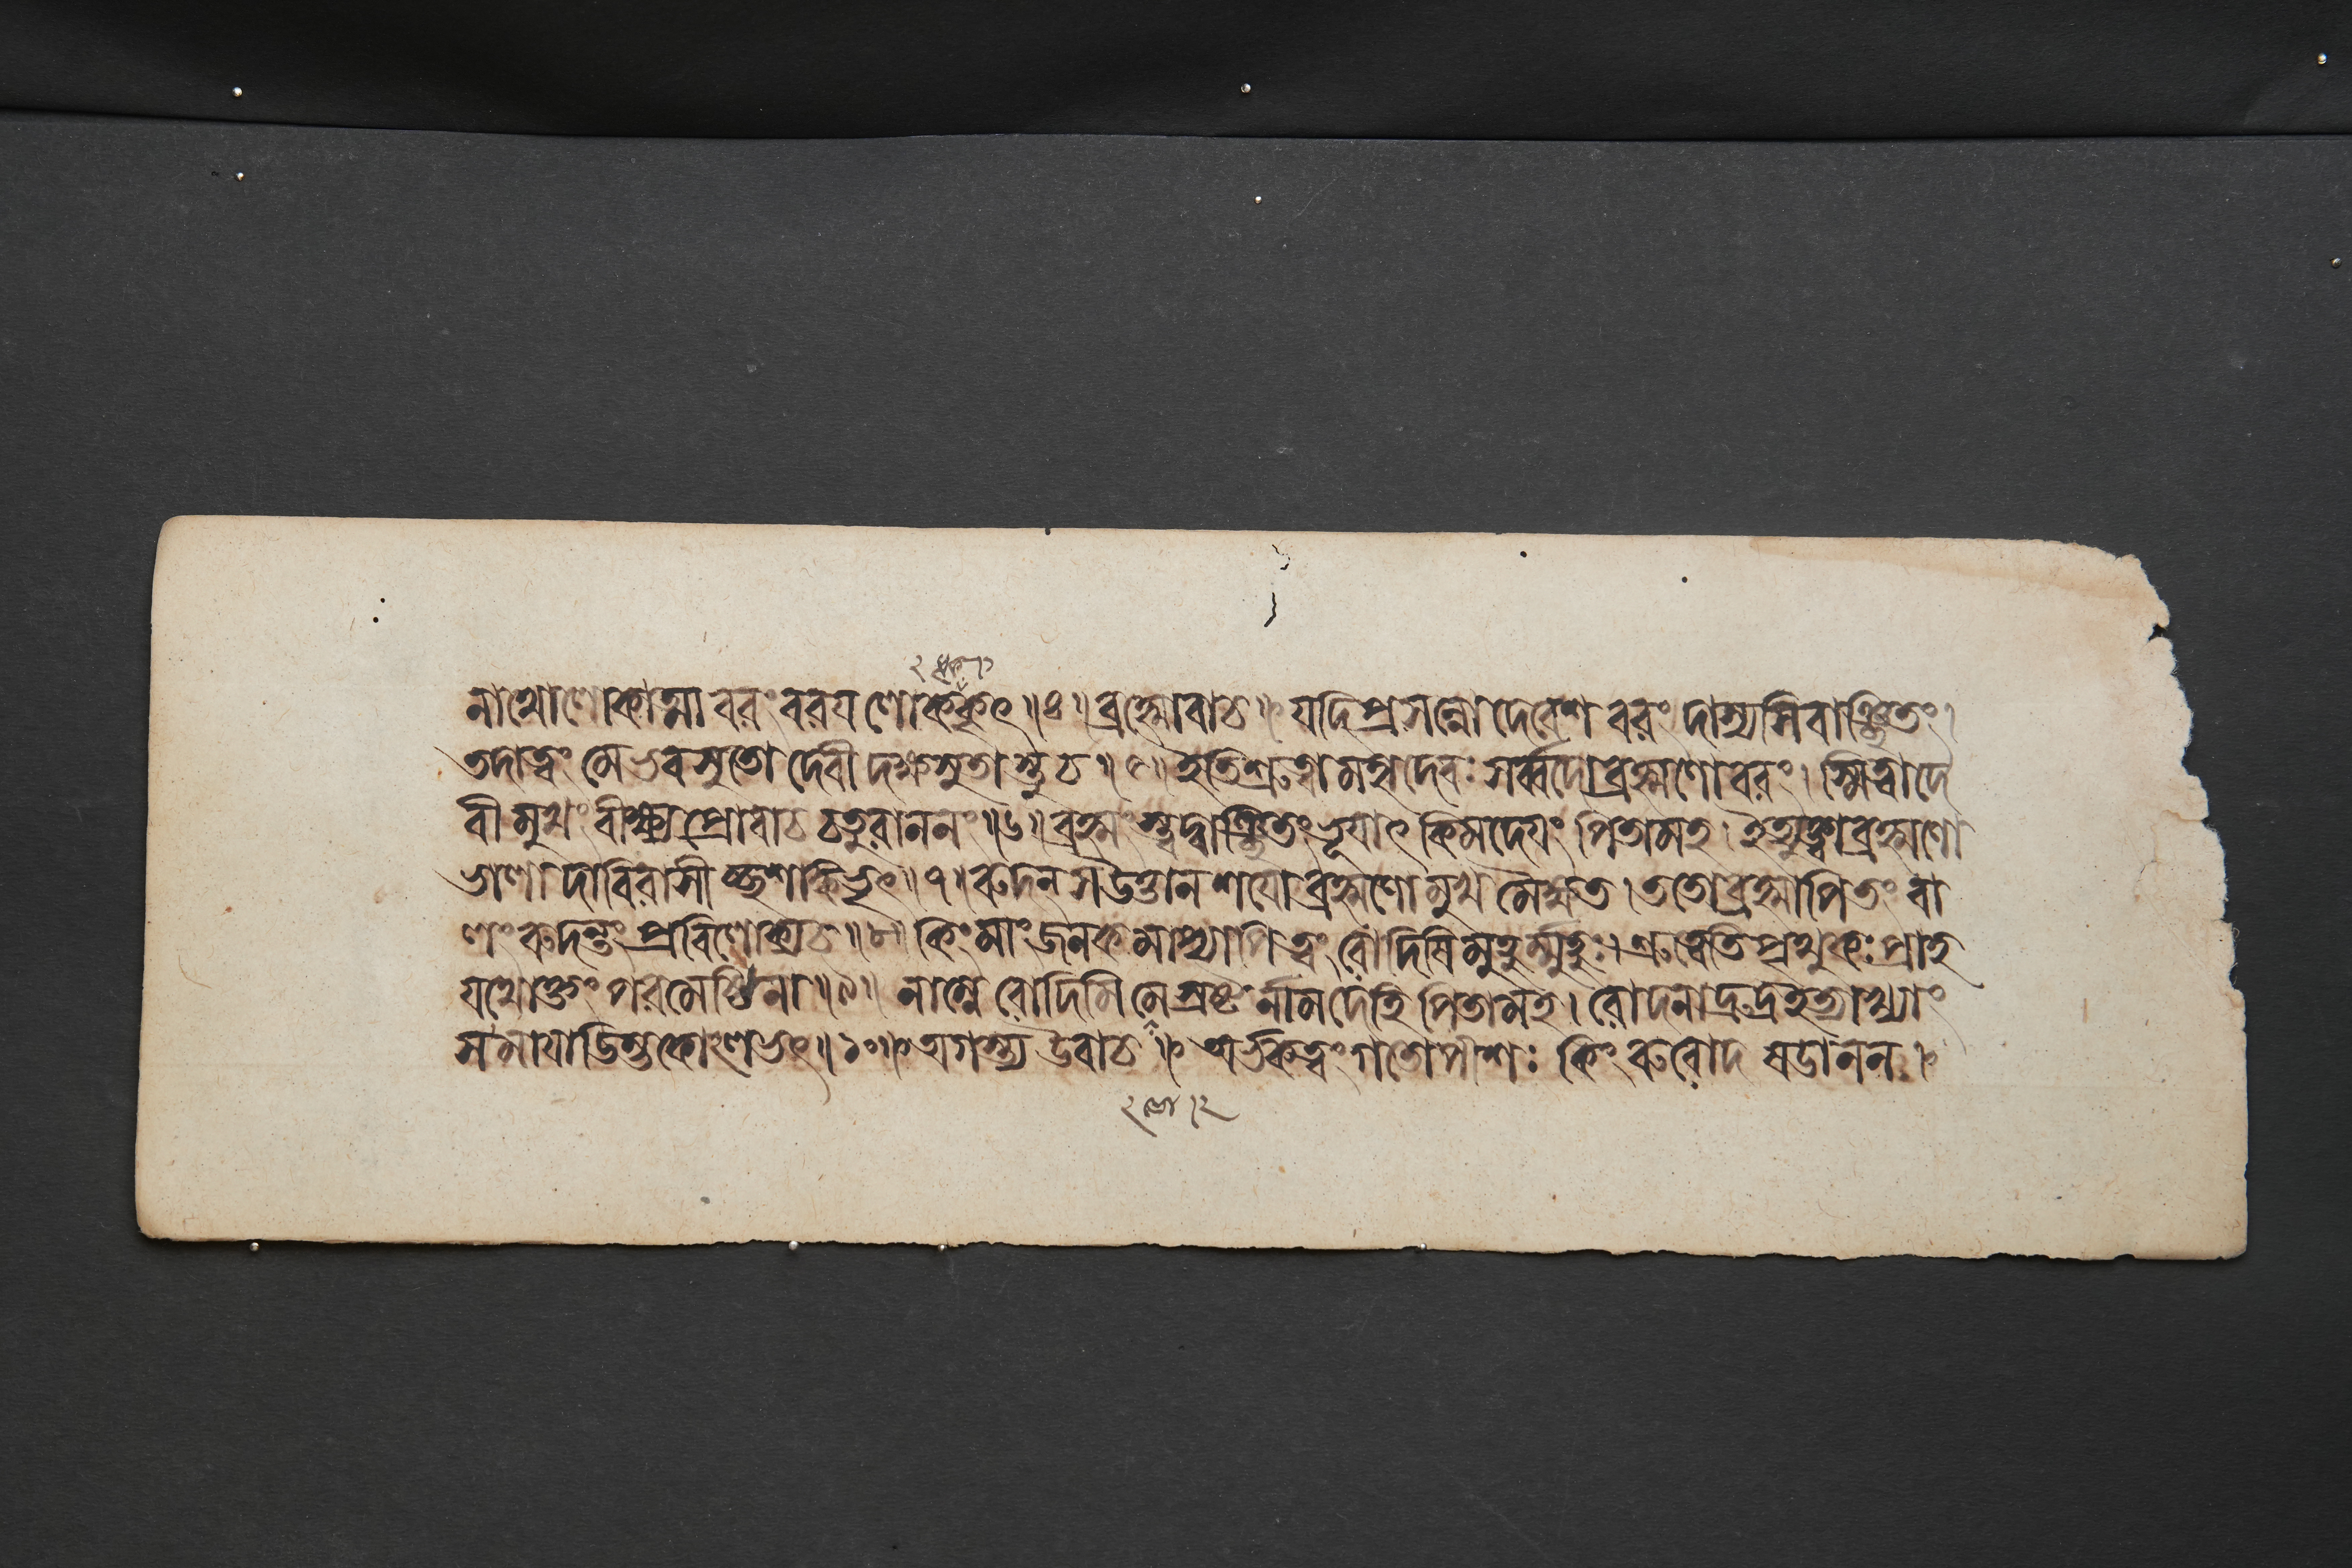 নাথো লোকাত্মা বরং বরয লোককৃৎ ॥ ৪ ॥ ব্রহ্মোবাচ ॥ যদি প্রসন্নো দেবেশ বরং দাস্যসি বাঞ্ছিতং ।
তদা ত্বং মে ভব সুতো দেবী দক্ষসুতাস্তু চ ॥ ৫ ॥ ইতি শ্রুত্বা মহাদেবঃ সর্ব্বদো ব্রহ্মণো বরং । স্মিত্বা দে
বী মুখং বীক্ষ্য প্রোবাচ চতুরাননং ॥ ৬ ॥ ব্রহ্মংস্ত্বদ্বাঞ্ছিতং ভূযাৎ কিমদেযং পিতামহ । ইত্যুক্ত্বা ব্রহ্মণো
ভালাদাবিরাসীচ্ছশাঙ্কভৃৎ ॥ ৭ ॥ রুদন্ স উত্তানশযো ব্রহ্মণো মুখমৈক্ষত । ততো ব্রহ্মাপি তং বা
লং রুদন্তং প্রবিলোক্য চ ॥ ৮ ॥ কিং মাং জনকমাপ্যাপি ত্বং রোদিষি মুহুর্ম্মুহুঃ । শ্রুত্বেতি পৃথুকঃ প্রাহ
যথোক্তং পরমেষ্ঠিনা ॥ ৯ ॥ নাম্নে রোদিমি মে স্রষ্টর্নাম দেহি পিতামহ । রোদনাদ্রুদ্র ইত্যাখ্যাং
সমাযাডিম্ভকোলভৎ ॥ ১০ ॥ অগস্ত্য উবাচ ॥ অর্ভকত্বং গতোপীশঃ কিং রুরোদ ষডানন ।